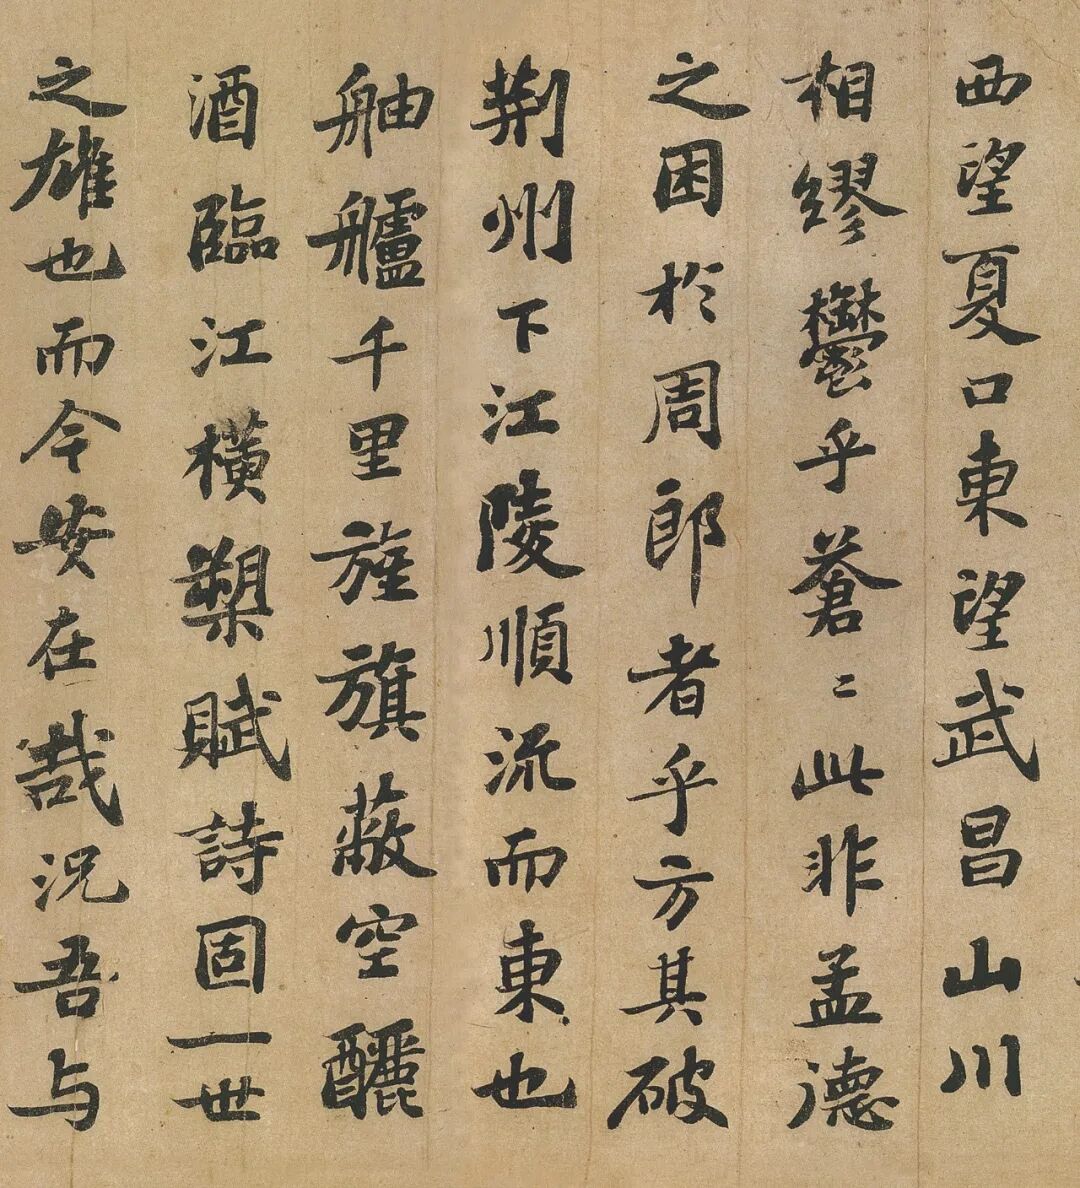 西望夏口東望武昌山川
相繆鬱乎蒼〻此非孟德
之困於周郎者乎方其破
荊州下江陵順流而東也
舳艫千里旌旗蔽空釃
酒臨江橫槊賦詩固一世
之雄也而今安在哉況吾与